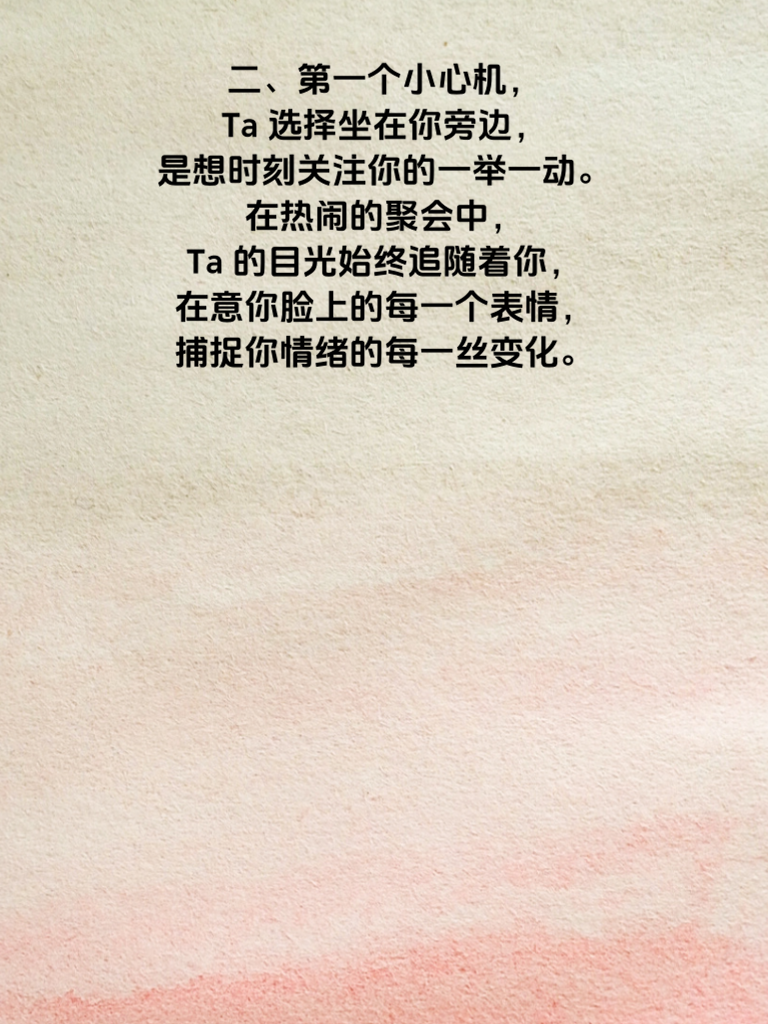 二、第一个小心机，
Ta 选择坐在你旁边，
是想时刻关注你的一举一动。
在热闹的聚会中，
Ta 的目光始终追随着你，
在意你脸上的每一个表情，
捕捉你情绪的每一丝变化。